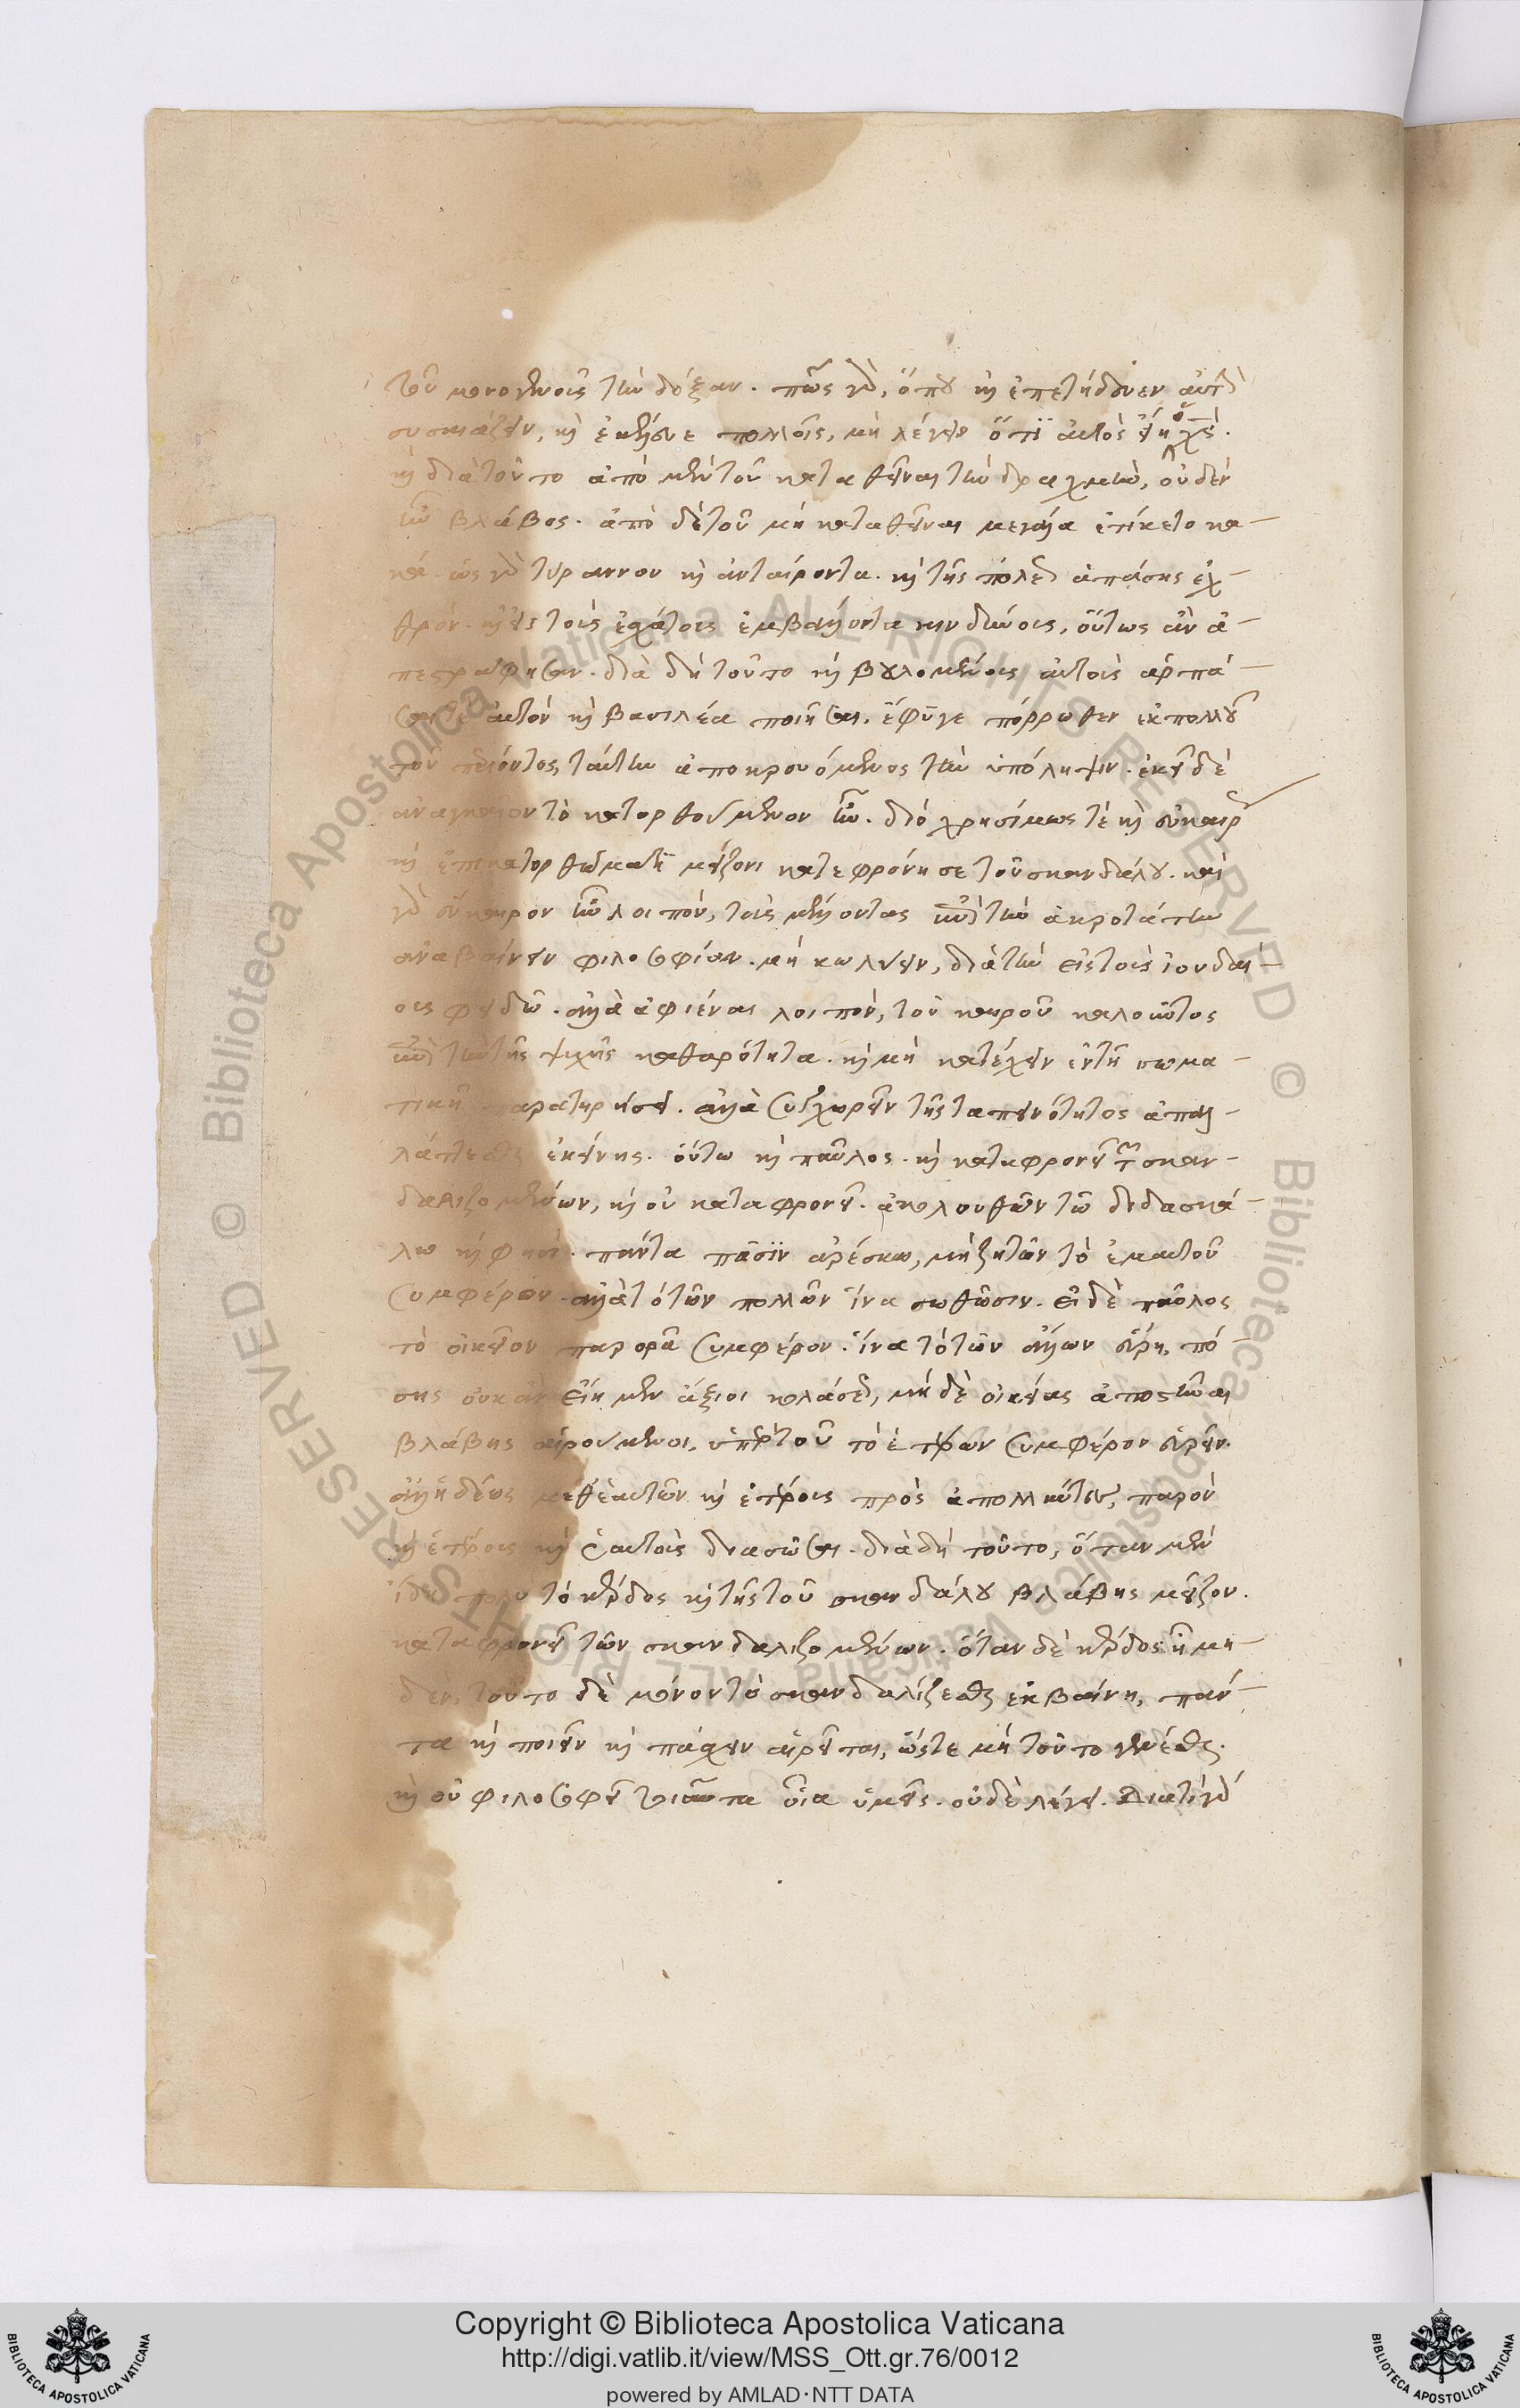 τοῦ μονογενοῦς τὴν δόξαν. πῶς γὰρ, ὅπου καὶ ἐπετήδευεν αὐτὸ
συσκιάζειν, καὶ ἐκέλευε πολλοῖς, μὴ λέγειν ὅτι αὐτὸς εἴη ὁ χς.
καὶ διὰ τοῦτο ἀπὸ μὲν τοῦ καταθεῖναι τὴν δραχμὴν, οὐδὲν
ἦν βλάβος. ἀπὸ δὲ τοῦ μὴ καταθεῖναι μεγάλα ἐτίκετο κα-
κά. ὡς γὰρ τύραννον καὶ ἀνταίροντα. καὶ τῆς πόλεως ἁπάσης ἐχ-
θρὸν. καὶ εἰς τοὺς ἐσχάτους ἐμβαλλοντα κινδύνους, οὕτως ἂν ἀ-
πεστράφησαν. διὰ δὴ τοῦτο καὶ βουλομένους αὐτοὺς ἁρπά-
σαι τὲ αὐτὸν καὶ βασιλέα ποιῆσαι, ἔφυγε πόρρωθεν ἐκ πολλοῦ
τοῦ περιόντος, ταύτην ἀποκρουόμενος τὴν ὑπόληψιν. ἐκεῖ δὲ
ἀναγκαῖον τὸ κατορθούμενον ἦν. διὸ χρησίμως τὲ καὶ εὐκαίρως
καὶ ἐπὶ κατορθώματι μείζονι κατεφρόνησε τοῦ σκανδάλου. καὶ
γὰρ εὔκαιρον ἦν λοιπὸν, τοὺς μέλλοντας ἐπὶ τὴν ἀκροτάτην
ἀναβαίνειν φιλοσοφίαν. μὴ κωλύειν, διὰ τὴν εἰς τοὺς ἰουδαί-
ους φειδὼ. ἀλλὰ ἀφιέναι λοιπὸν, τοῦ καιροῦ καλοῦντος
ἐπὶ τὴν τῆς ψυχῆς καθαρότητα. καὶ μὴ κατέχειν ἐν τῆ σωμα-
τικῆ παρατηρήσει. ἀλλὰ συγχωρεῖν τῆς ταπεινότητος ἀπαλ-
λάττεσθαι ἐκείνης. οὕτω καὶ παῦλος. καὶ καταφρονεῖ τῶν σκαν-
δαλιζομένων, καὶ οὐ καταφρονεῖ. ἀκολουθῶν τῶ διδασκά-
λω καὶ φησὶ. πάντα πᾶσιν ἀρέσκω, μὴ ζητῶν τὸ ἐμαυτοῦ
συμφέρον. ἀλλὰ τὸ τῶν πολλῶν ἵνα σωθῶσιν. εἰ δὲ παῦλος
τὸ οἰκεῖον παρορᾶ συμφέρον. ἵνα τὸ τῶν ἄλλων εὕρη, πό
σης οὐκ ἂν εἴημεν ἄξιοι κολάσεως, μὴ δὲ οἰκείας ἀποστῆναι
βλάβης αἱρούμενοι, ὑπὲρ τοῦ τὸ ἑτέρων συμφέρον εὑρεῖν.
ἀλλ' ἡδέως μεθ' ἑαυτῶν καὶ ἑτέρους προσαπολλύντες, παρὸν
καὶ ἑτέρους καὶ ἑαυτοὺς διασῶσαι. διὰ δὴ τοῦτο, ὅταν μὲν
ἴδη πολὺ τὸ κέρδος καὶ τῆς τοῦ σκανδάλου βλάβης μεῖζον.
καταφρονεῖ τῶν σκανδαλιζομένων. ὅταν δὲ κέρδος ἢ μη-
δὲν, τοῦτο δὲ μόνον τὸ σκανδαλίζεσθαι ἐκβαίνη, πάν-
τα καὶ ποιεῖν καὶ πάσχειν αἱρεῖται, ὥστε μὴ τοῦτο γενέσθαι.
καὶ οὐ φιλοσοφεῖ τοιαῦτα οἷα ὑμεῖς. οὐδὲ λέγει. διατί γὰρ
Copyright © Biblioteca Apostolica Vaticana
http://digi.vatlib.it/view/MSS_Ott.gr.76/0012
powered by AMLAD·NTT DATA